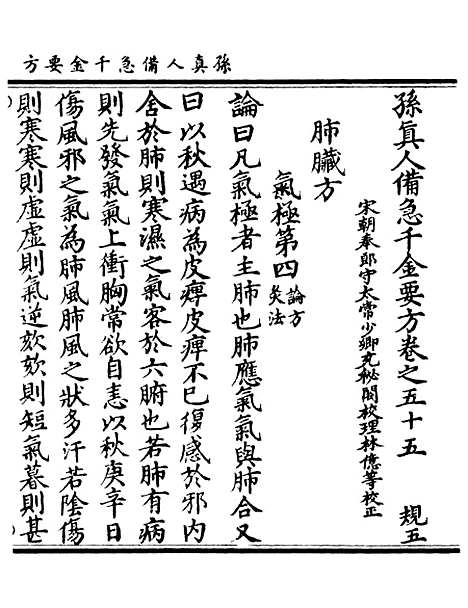 孫真人備急千金要方
孫真人備急千金要方卷之五十五 規五
宋朝奉郎守太常少卿充秘閣校理林億等校正
肺臟方
氣極第四 論方 灸法
論曰凡氣極者主肺也肺應氣氣與肺合又
曰以秋遇病為皮痺皮痺不已復感於邪內
舍於肺則寒濕之氣客於六腑也若肺有病
則先發氣氣上衝胸常欲自恚以秋庚辛日
傷風邪之氣為肺風肺風之狀多汗若陰傷
則寒寒則虛虛則氣逆欬欬則短氣暮則甚